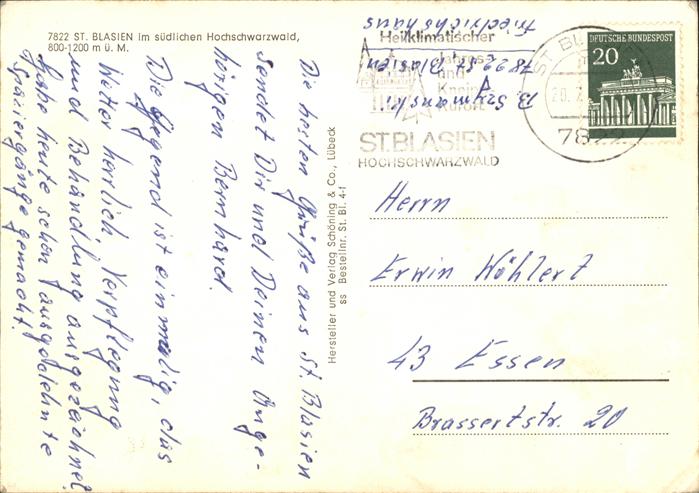 7822 ST. BLASIEN im südlichen Hochschwarzwald,
800-1200 m ü. M.
Die besten Grüße aus St. Blasien
sendet Dir und Deinen Ange-
hörigen Bernhard.
Die Gegend ist einmalig, das
Wetter herrlich, Verpflegung
und Behandlung ausgezeichnet
Habe heute schon ausgedehnte
Spaziergänge gemacht.
Hersteller und Verlag Schöning & Co., Lübeck
ss Bestellnr. St. Bl. 4-f
B. Szymanski
7822 St. Blasien
Friedrichshaus
Heilklimatischer
Jahres-
und
Kneipp
kurort
ST. BLASIEN
HOCHSCHWARZWALD
ST. BL
20.
7822
DEUTSCHE BUNDESPOST
20
Herrn
Erwin Wöhlert
43 Essen
Brassertstr. 20